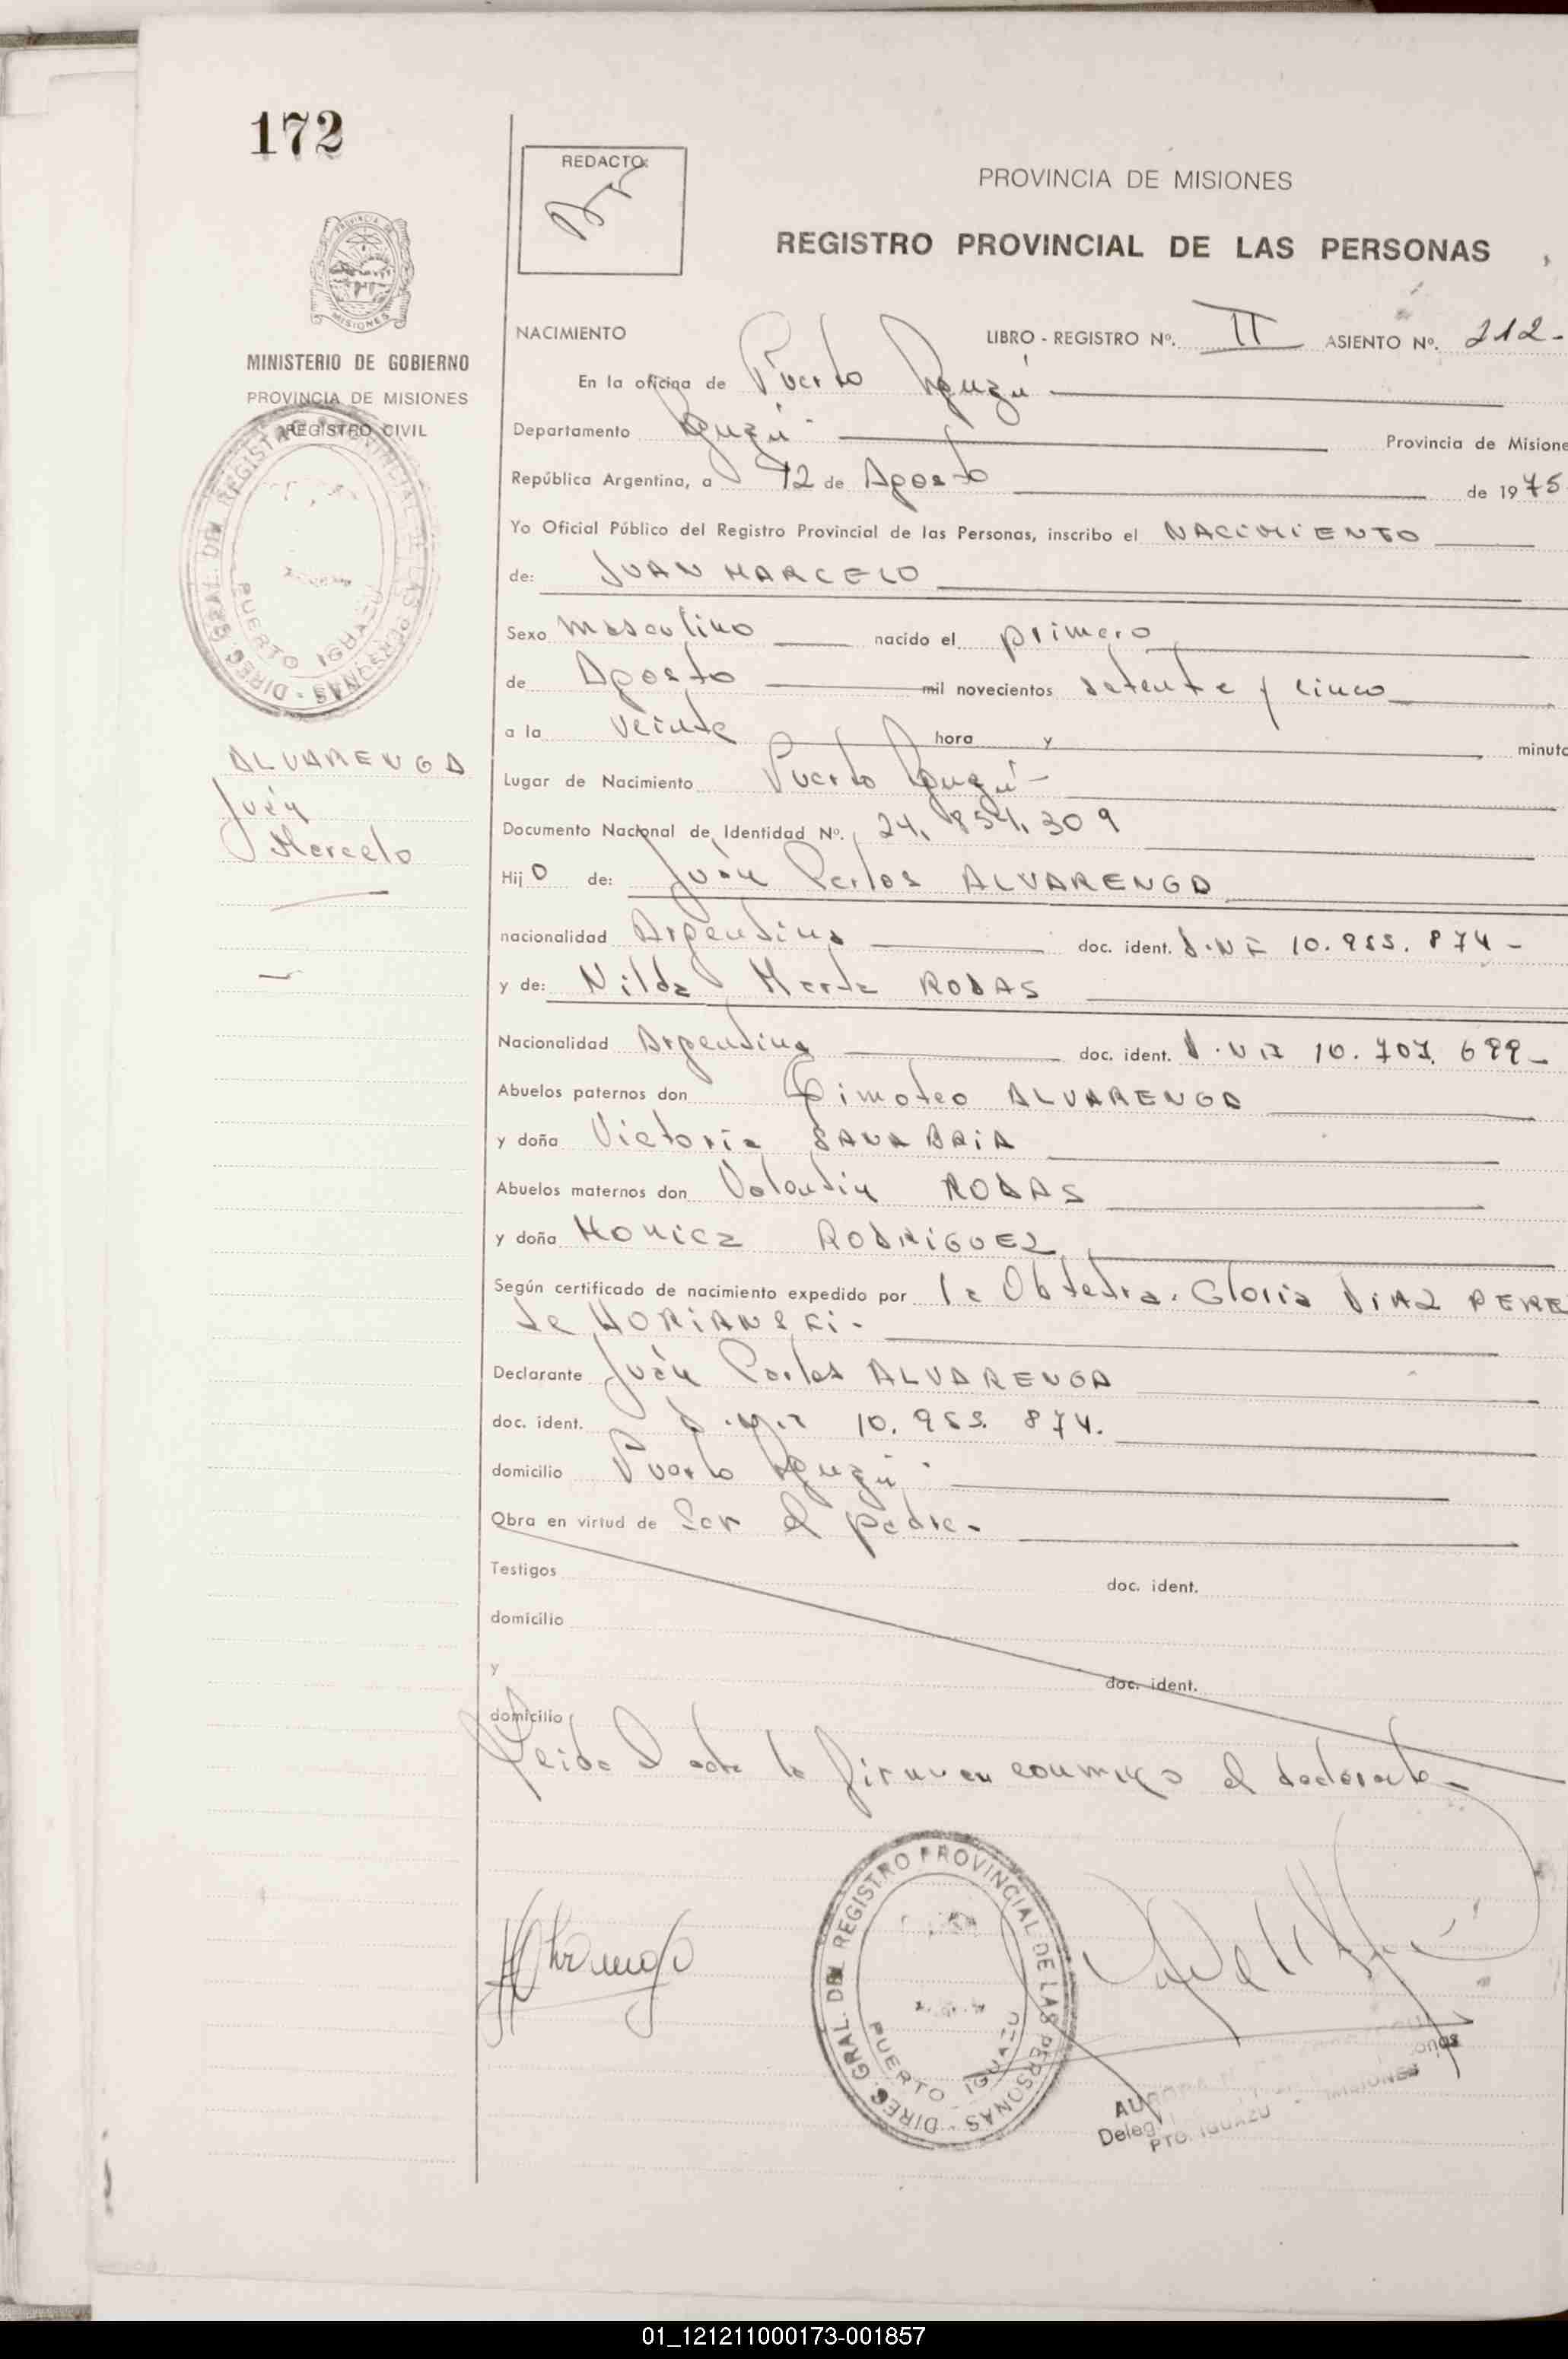 172
REDACTO:
PROVINCIA DE MISIONES
REGISTRO PROVINCIAL DE LAS PERSONAS
PROVINCIA DE
MISIONES
MINISTERIO DE GOBIERNO
PROVINCIA DE MISIONES
REGISTRO CIVIL
DIREC. GRAL. DEL REGISTRO PROVINCIAL DE LAS PERSONAS -
PUERTO IGUAZU
ALVARENGA
Juan
Marcelo
NACIMIENTO LIBRO - REGISTRO Nº. II ASIENTO Nº. 212-
En la oficina de Puerto Iguazú
Departamento Iguazú Provincia de Misione
República Argentina, a 12 de Agosto de 1975
Yo Oficial Público del Registro Provincial de las Personas, inscribo el NACIMIENTO
de: JUAN MARCELO
Sexo masculino nacido el primero
de Agosto mil novecientos setenta y cinco
a la veinte hora y minuto
Lugar de Nacimiento Puerto Iguazú -
Documento Nacional de Identidad Nº. 24.854.309
Hijo de: Juan Carlos ALVARENGA
nacionalidad Argentina doc. ident. 874-
y de: Nilda Marta RODAS
Nacionalidad Argentina doc. ident. 10.707.699-
Abuelos paternos don Timoteo ALVARENGA
y doña Victoria SANABRIA
Abuelos maternos don Valentin RODAS
y doña Monica RODRIGUEZ
Según certificado de nacimiento expedido por la Obstetra. Gloria DIAZ PERE
de
Declarante Juan Carlos ALVARENGA
doc. ident. 874.
domicilio Puerto Iguazú -
Obra en virtud de Ser el padre-
Testigos doc. ident.
domicilio
y doc. ident.
domicilio
Leida el acta la firman conmigo el declarante-
DIREC. GRAL. DEL REGISTRO PROVINCIAL DE LAS PERSONAS -
PUERTO IGUAZU
PTO. IGUAZU - MISIONES
01_121211000173-001857